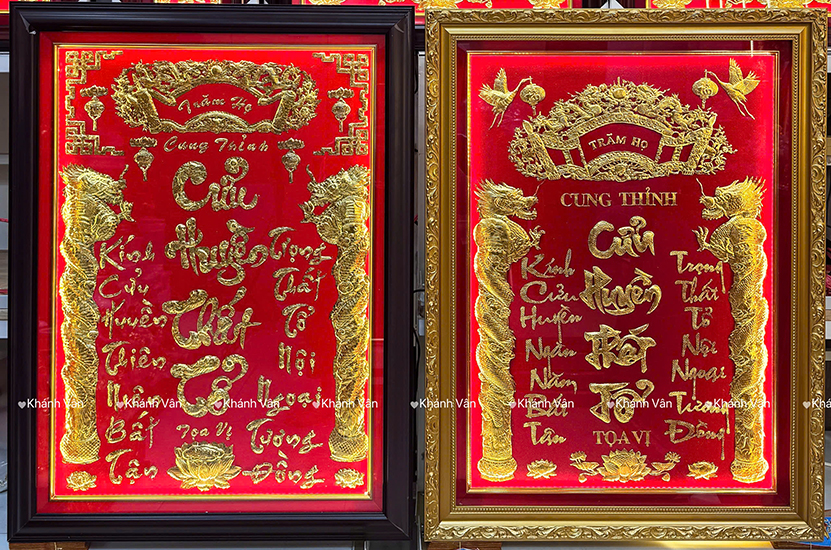 Trăm Họ
Cung Thỉnh
Cửu
Huyền
Thất
Tổ
Tọa Vị
Kính
Cửu
Huyền
Thiên
Niên
Bất
Tận
Trọng
Thất
Tổ
Nội
Ngoại
Tương
Đồng
TRĂM HỌ
CUNG THỈNH
Cửu
Huyền
Thất
Tổ
TỌA VỊ
Kính
Cửu
Huyền
Ngàn
Năm
Bất
Tận
Trọng
Thất
Tổ
Nội
Ngoại
Tương
Đồng
Khánh Vân Khánh Vân Khánh Vân Khánh Vân Khánh Vân Khánh Vân Khánh Vân Khánh Vân